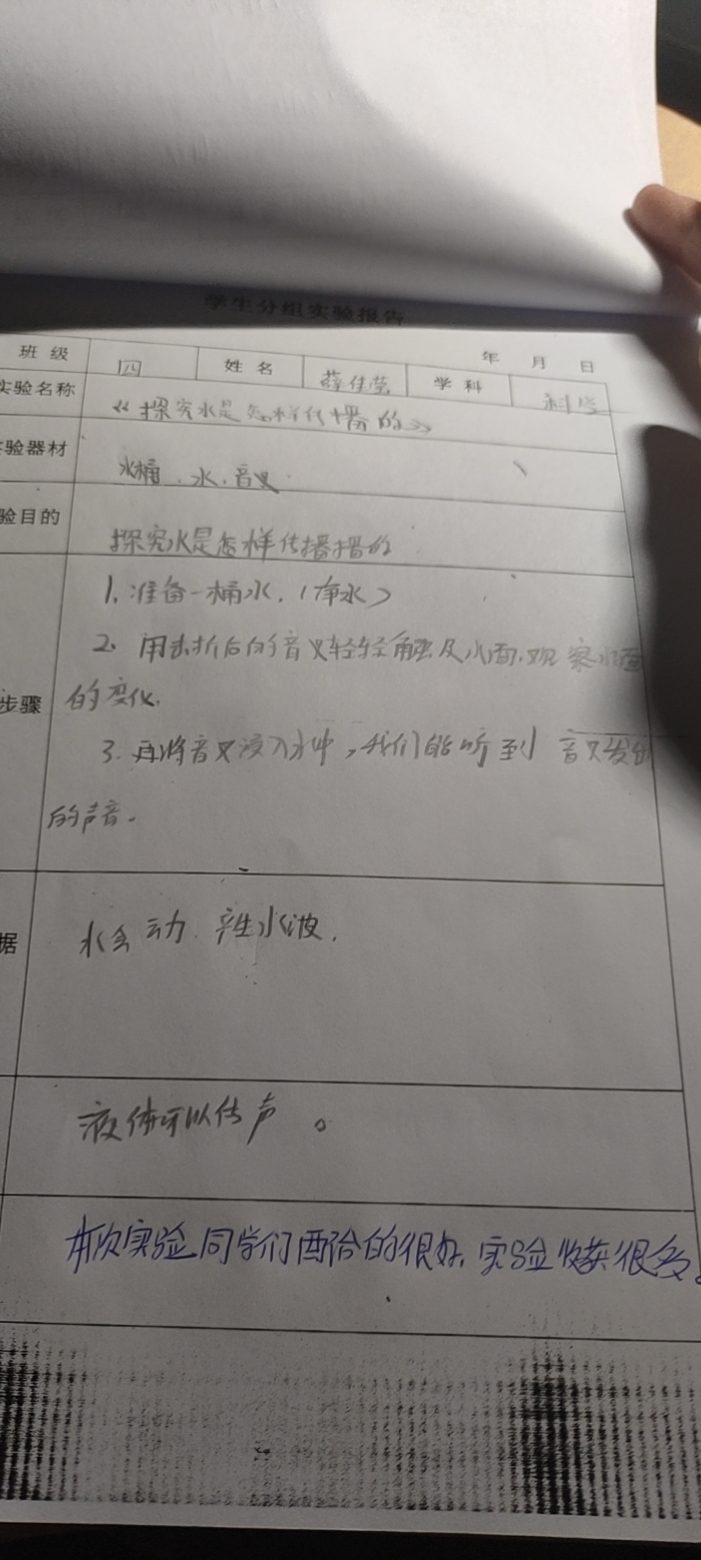 学生分组实验报告
年 月 日
班 级 四 姓 名 薛佳莹 学 科 科学
实验名称 《探究水是怎样传播的》
验器材 水桶．水．音叉
验目的 探究水是怎样传播播的
步骤 1. 准备一桶水．（净水）
2. 用击折后的音叉轻轻触及水面．观察水面
的变化．
3. 再将音叉浸入水中，我们能听到 音叉发出
的声音．
据 水会动．产生水波．
液体可以传声。
本次实验同学们配合的很好．实验收获很多。